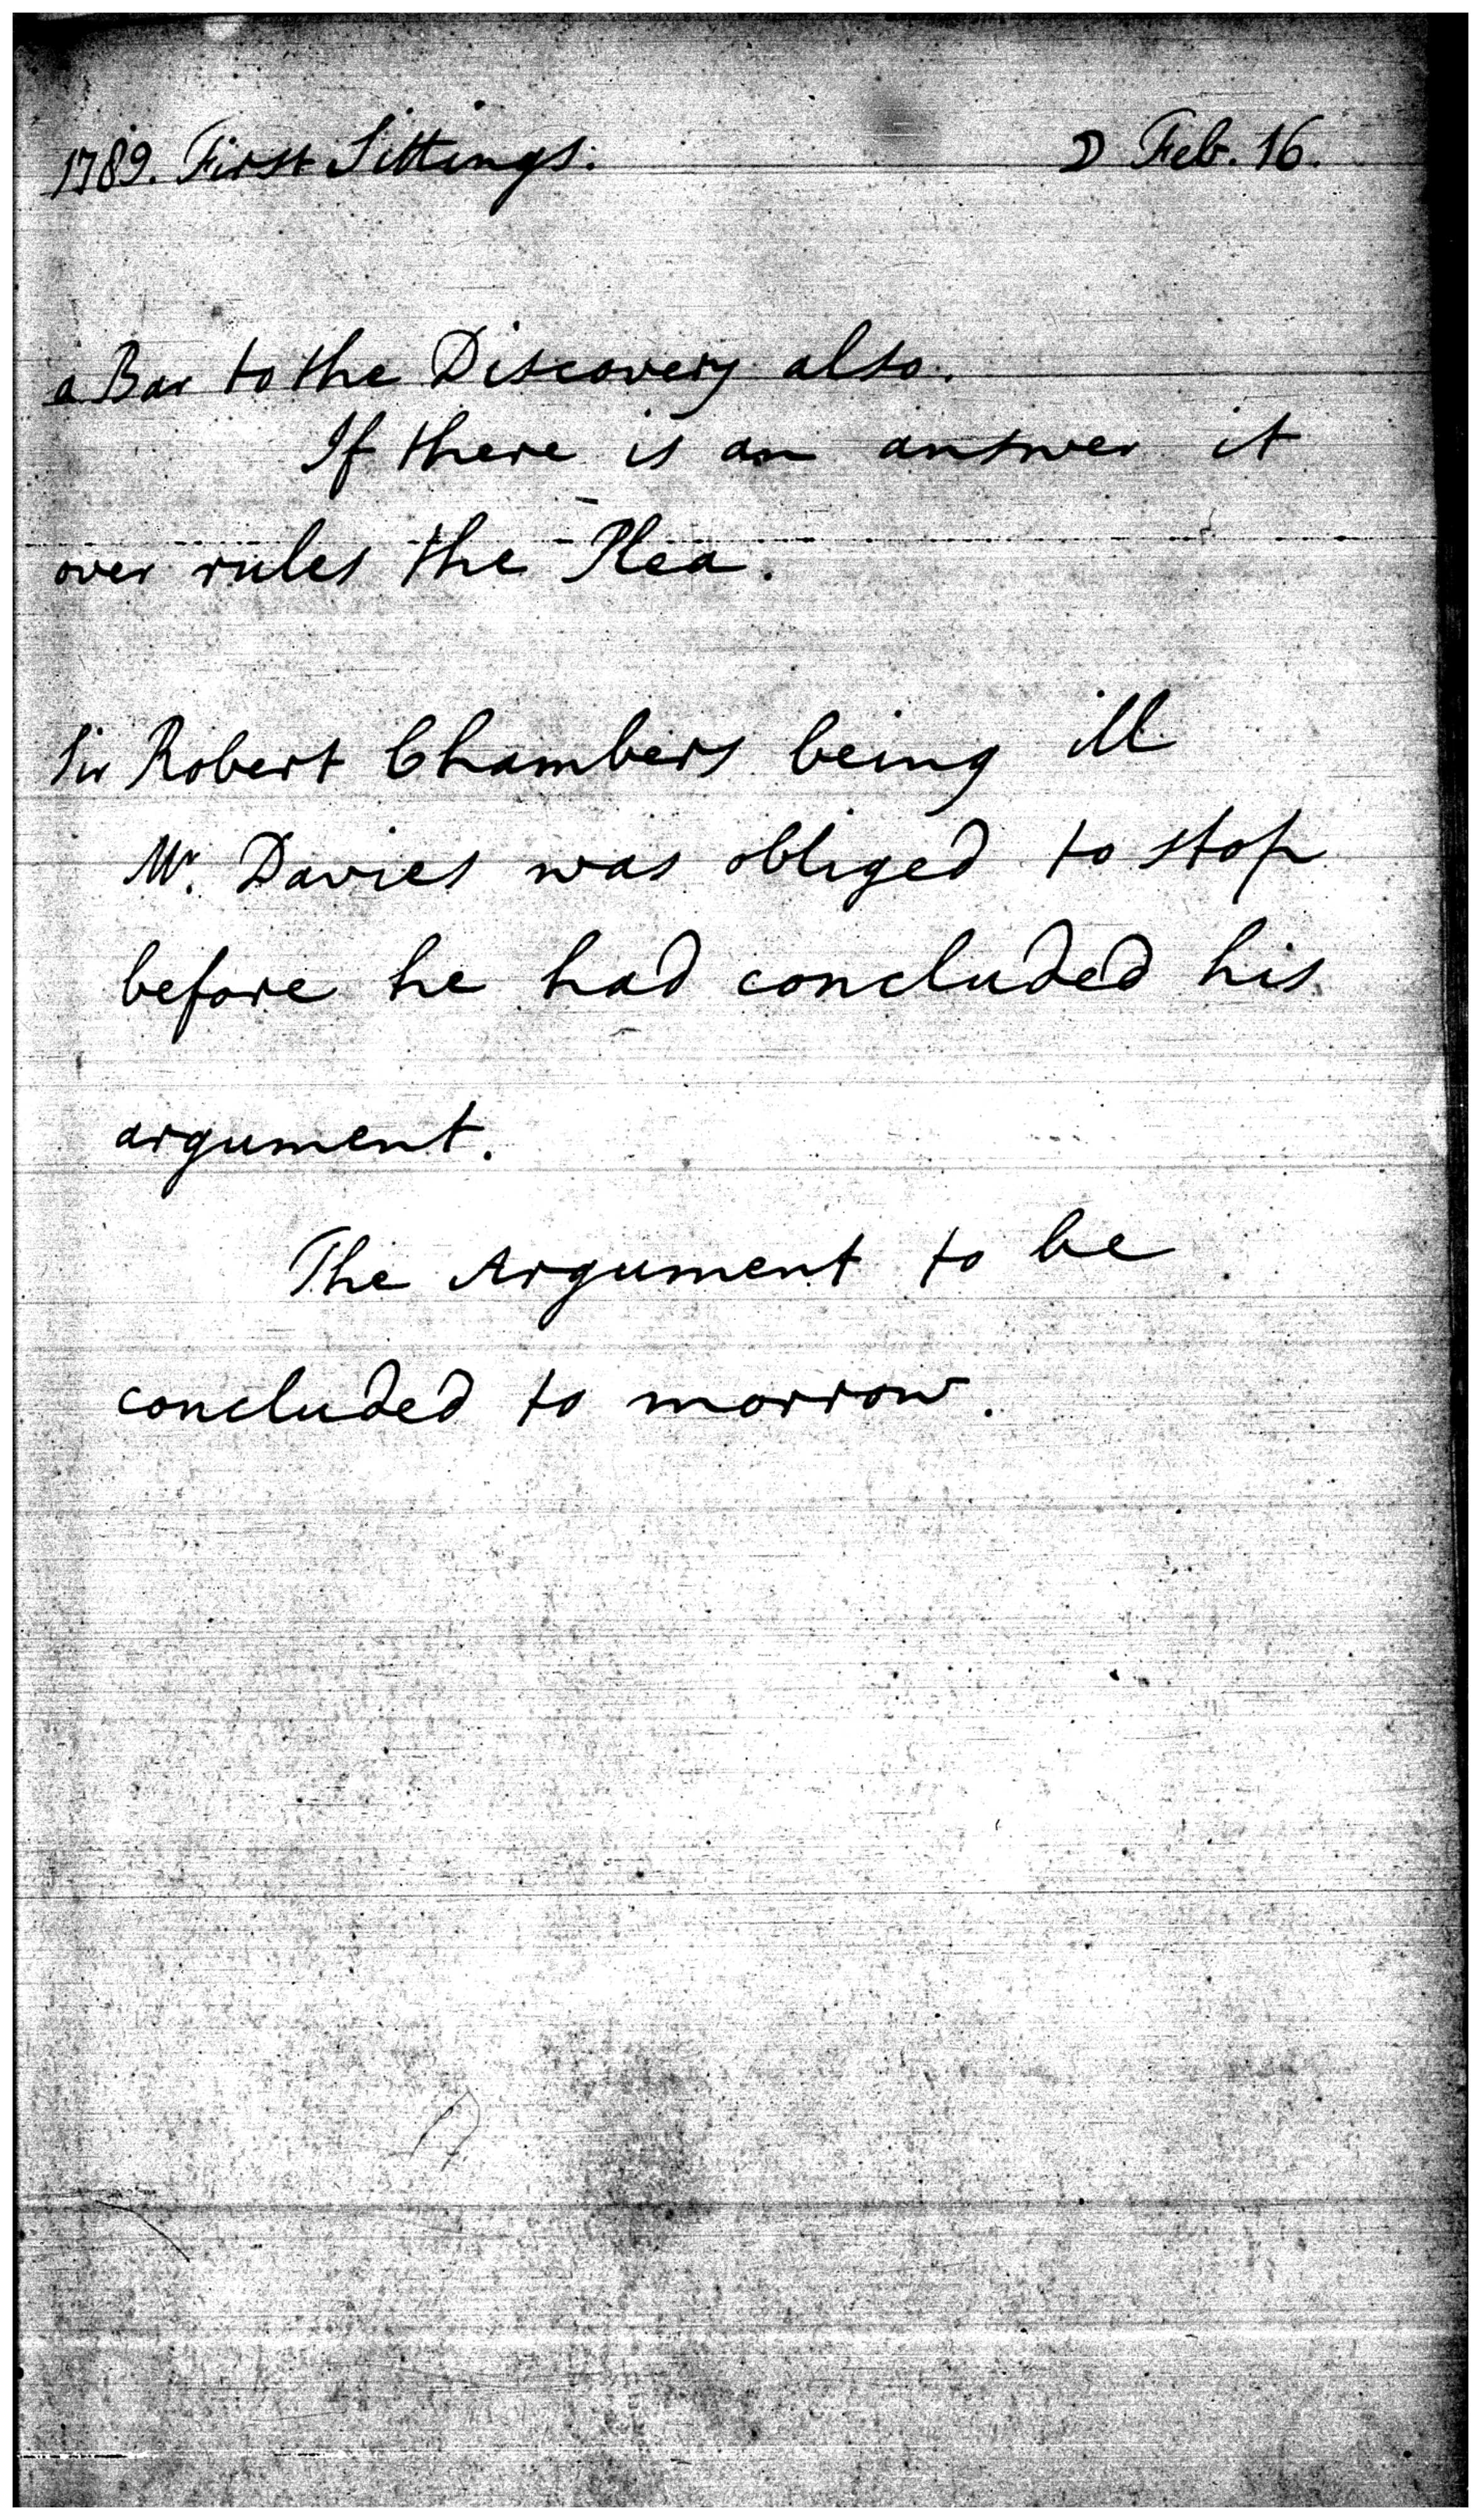 1789. First Sittings. ☽ Feb. 16.
a Bar to the Discovery also.
If there is an answer it
over rules the Plea.
Sir Robert Chambers being ill
Mr. Davies was obliged to stop
before he had concluded his
argument.
The Argument to be
concluded to morrow.